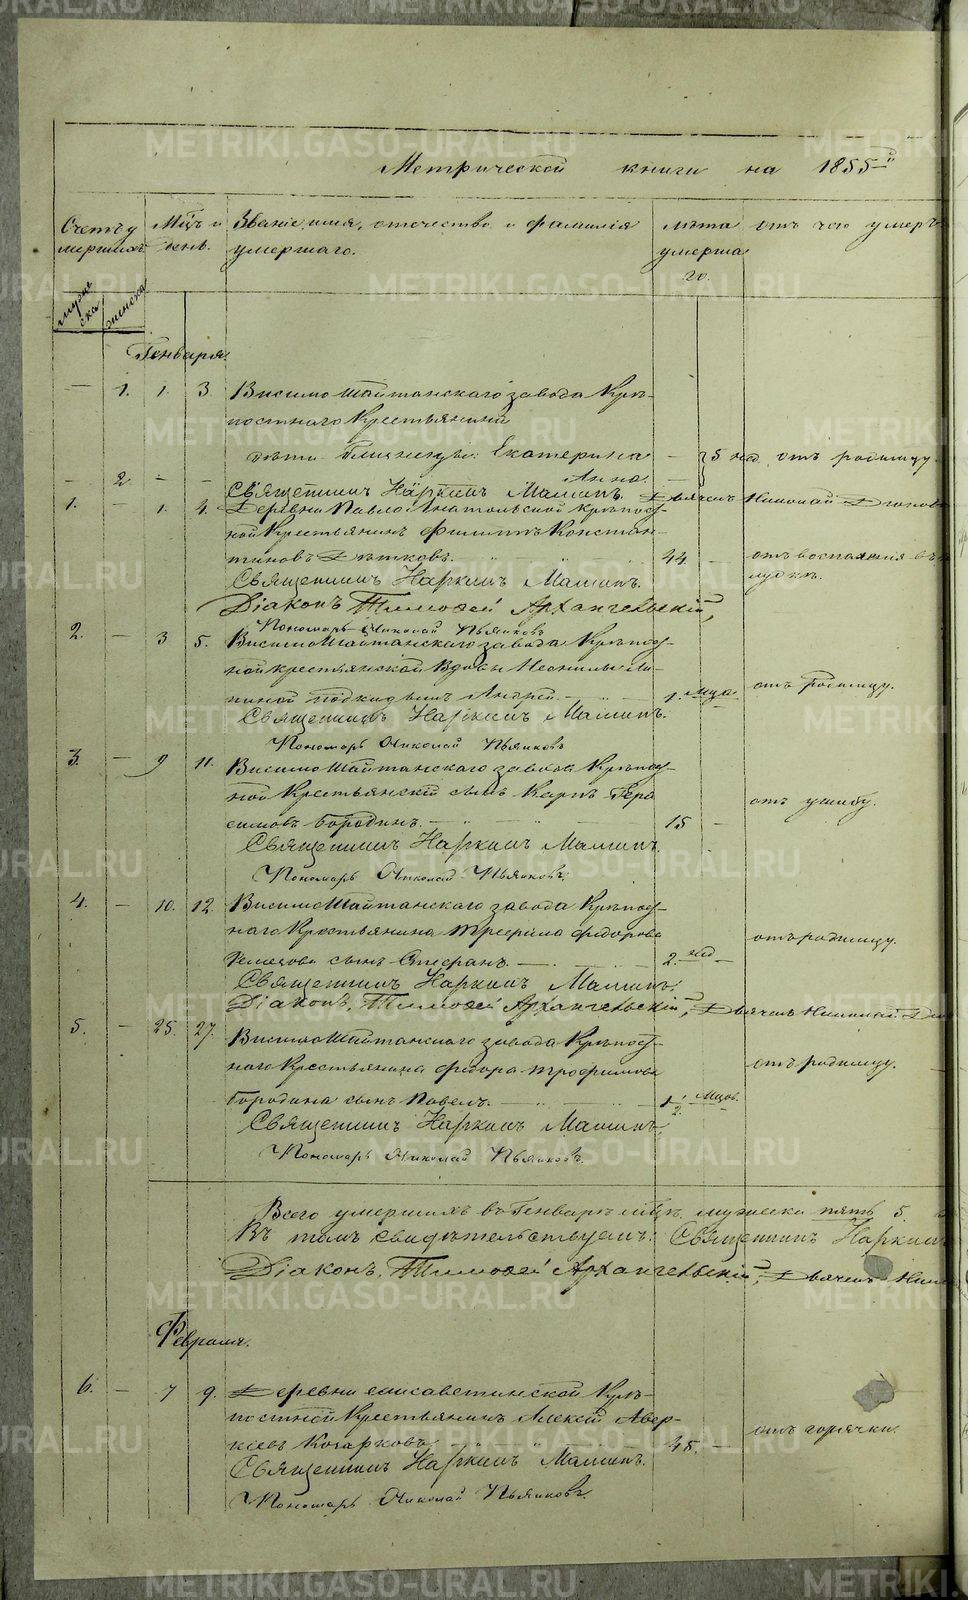 Метрической книги на 1855й
Счетъ умершихъ
Мцъ и день.
Званіе, имя, отечество и фамилія умершаго.
лѣта умершаго.
отъ чего умеръ
мужеска
женска
Генваря.
— 1. 1. 3. Висимо Шайтанскаго завода Крѣ-
постнаго Крестьянина
дѣти близнецы: Екатерина — 5 нед. отъ родимцу.
— 2. — — Анна.
Священникъ Наркисъ Маминъ. Дьячекъ Николай
1. — 1. 4. Деревни Павло Анатольской крѣпост-
ной Крестьянинъ Филиппъ Констан-
тиновъ 44. — отъ воспаленія въ
Священникъ Наркисъ Маминъ.
Діаконъ Тимоѳей Архангельскій,
Пономарь Николай Пьянковъ
2. — 3 5. Висимо Шайтанскаго завода Крѣпост-
ной крестьянской Вдовы
подкидышъ Андрей — 1. мца. отъ родимцу.
Священникъ Наркисъ Маминъ.
Пономарь Николай Пьянковъ
3. — 9 11. Висимо Шайтанскаго завода Крѣпост-
ной Крестьянскій сынъ Карпъ Гера-
симовъ Бородинъ. — 15 — отъ ушибу.
Священникъ Наркисъ Маминъ.
Пономарь Николай Пьянковъ.
4. — 10. 12. Висимо Шайтанскаго завода Крѣпост-
наго Крестьянина Трефила Федорова
сынъ Стефанъ. — 2. нед — отъ родимцу.
Священникъ Наркисъ Маминъ.
Діаконъ, Тимоѳей Архангельскій, Дьячекъ Николай
5. — 25. 27. Висимо Шайтанскаго завода Крѣпост-
наго Крестьянина Федора Трофимова
Бородина сынъ Павелъ. — 1½ мцов. отъ родимцу.
Священникъ Наркисъ Маминъ,
Пономарь Николай Пьянковъ.
Всего умершихъ въ Генварѣ мцѣ, мужеска пять 5.
Въ томъ свидѣтельствуемъ: Священникъ Наркисъ
Діаконъ, Тимоѳей Архангельскій, Дьячекъ
Февраля.
6. — 7 9. Деревни Елисаветинской Крѣ-
постной Крестьянинъ Алексѣй Авер-
кіевъ Кочарковъ 45. — отъ горячки.
Священникъ Наркисъ Маминъ.
Пономарь Николай Пьянковъ.
METRIKI.GASO-URAL.RU